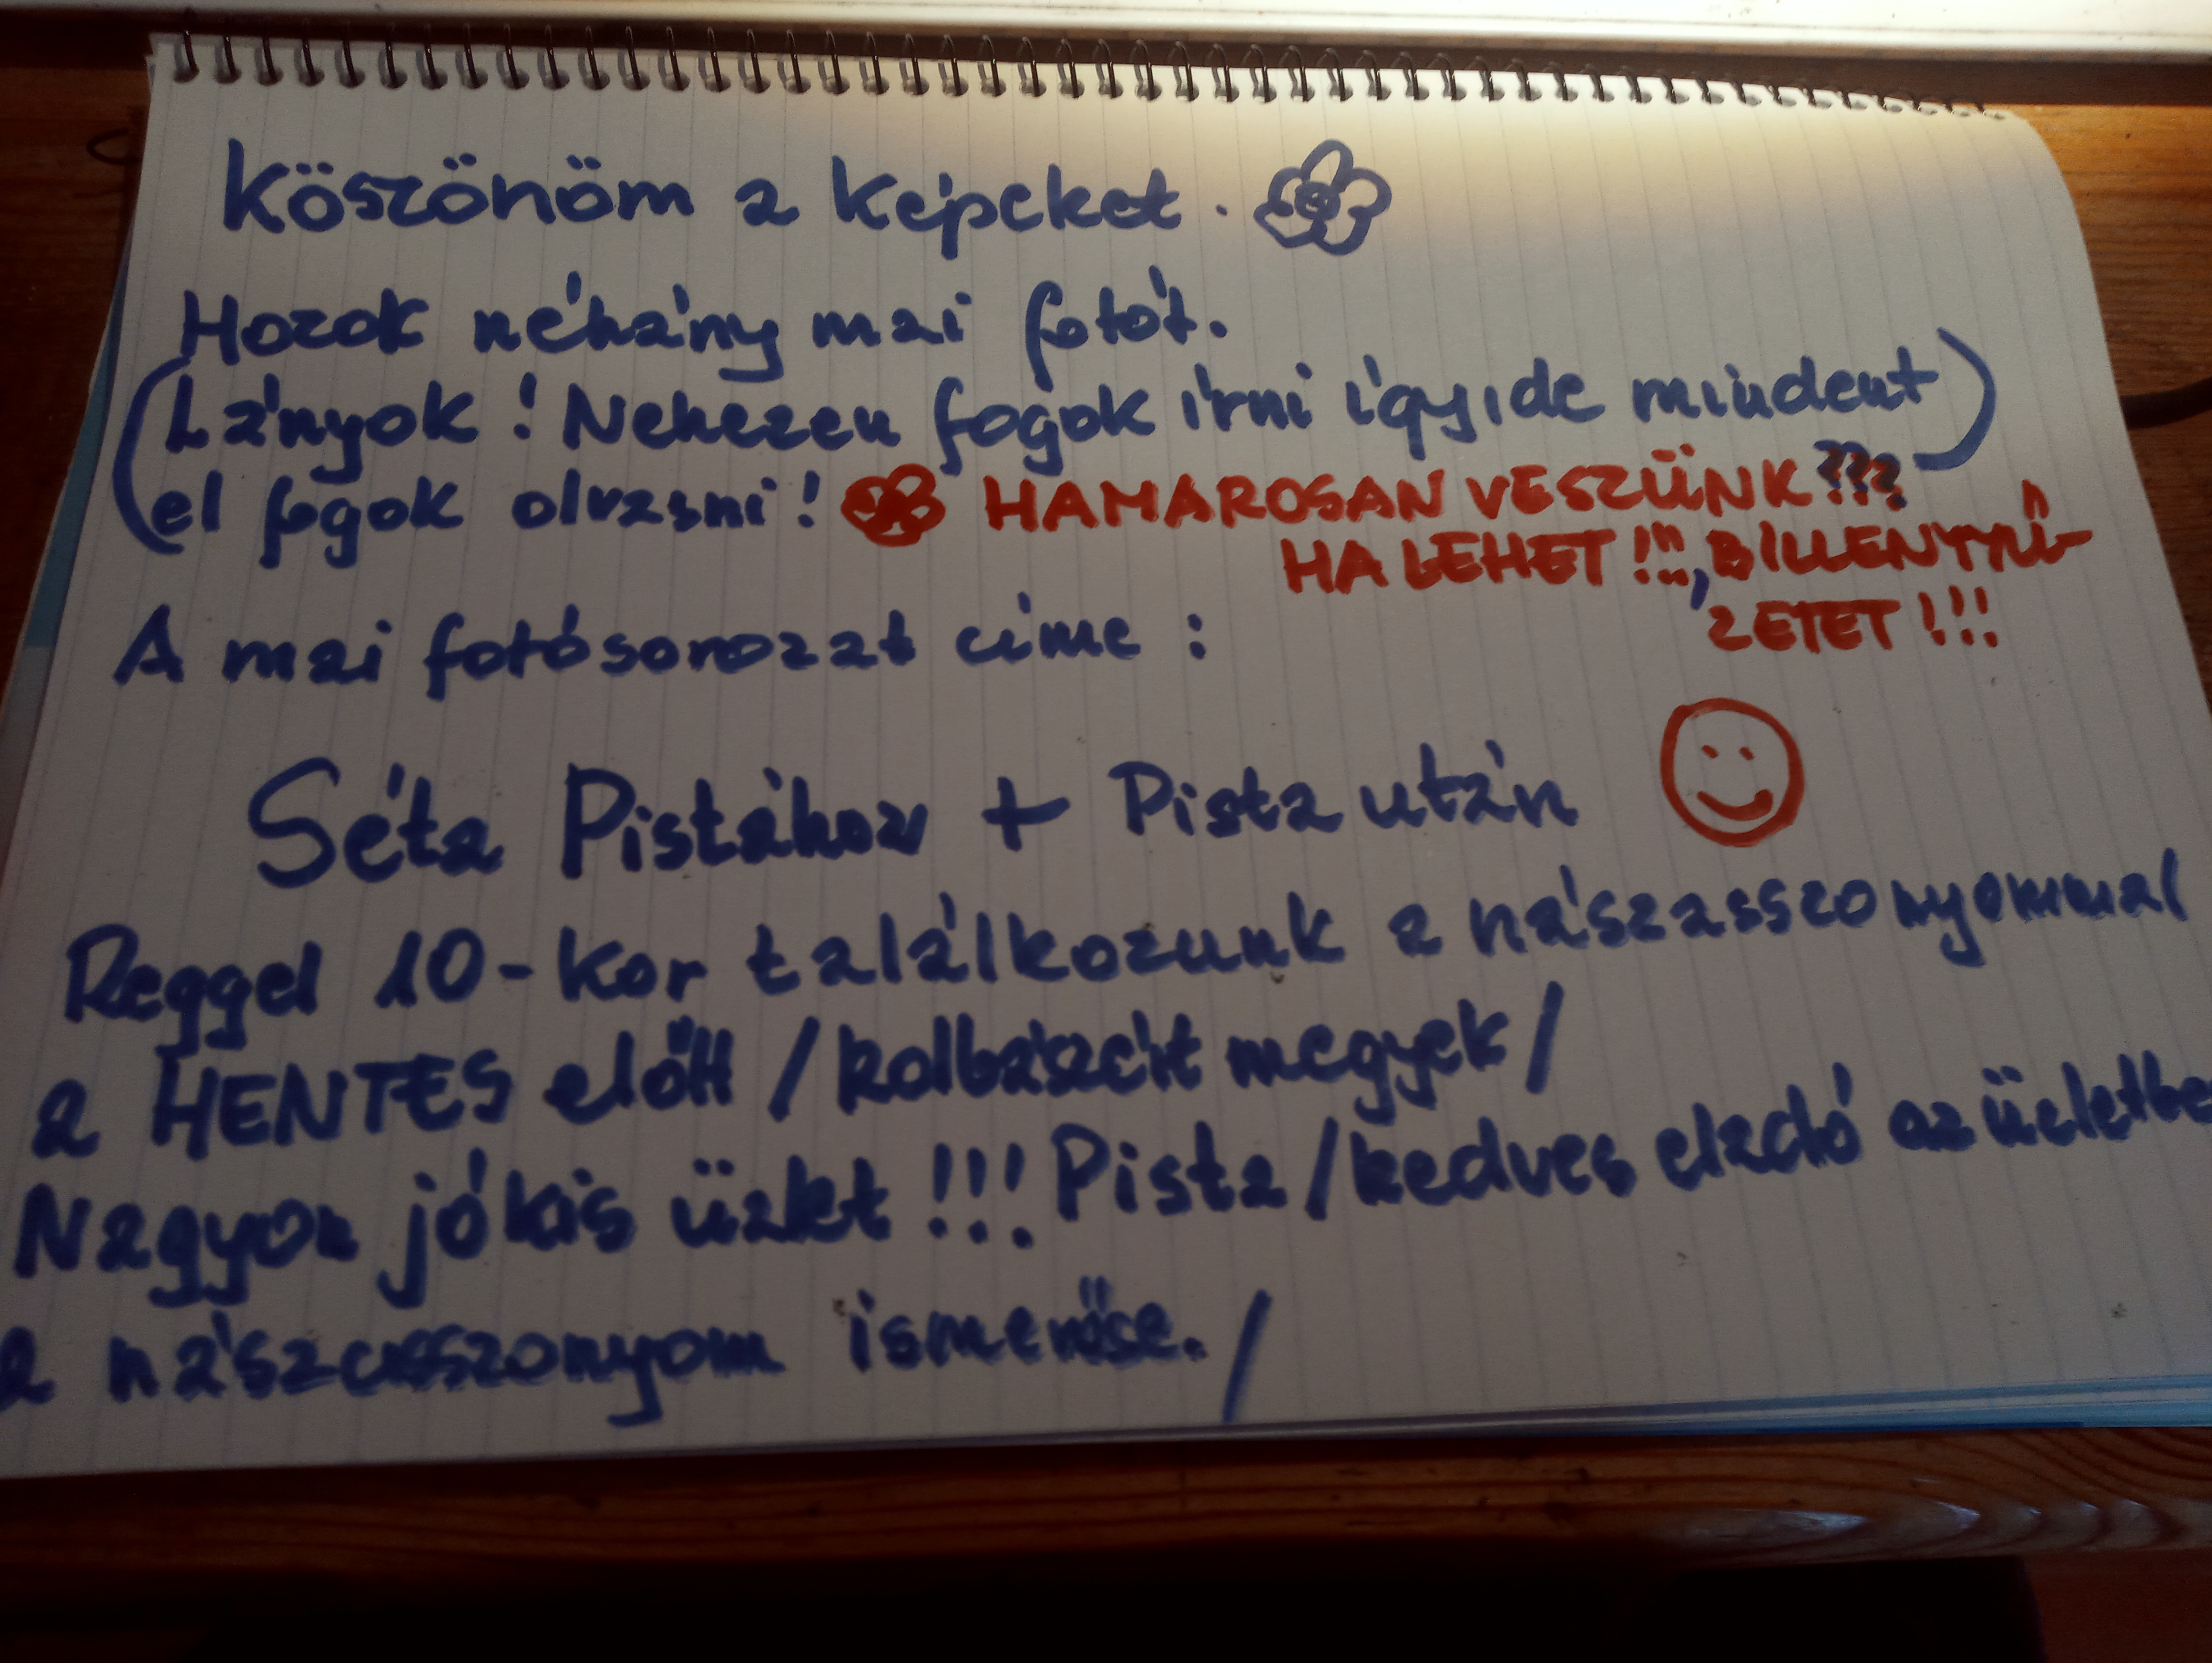 Köszönöm a képeket.
Hozok néhány mai fotót.
(Lányok! Nehezen fogok írni így, de mindent)
el fogok olvasni! HAMAROSAN VESZÜNK???
HA LEHET!!!, BILLENTYŰ-
ZETET!!!
A mai fotósorozat címe:
Séta Pistához + Pista után
Reggel 10-kor találkozunk a nászasszonyommal
a HENTES előtt /kolbászért megyek/
Nagyon jó kis üzlet!!! Pista/kedves eladó az üzletbe
a nászasszonyom ismerőse./